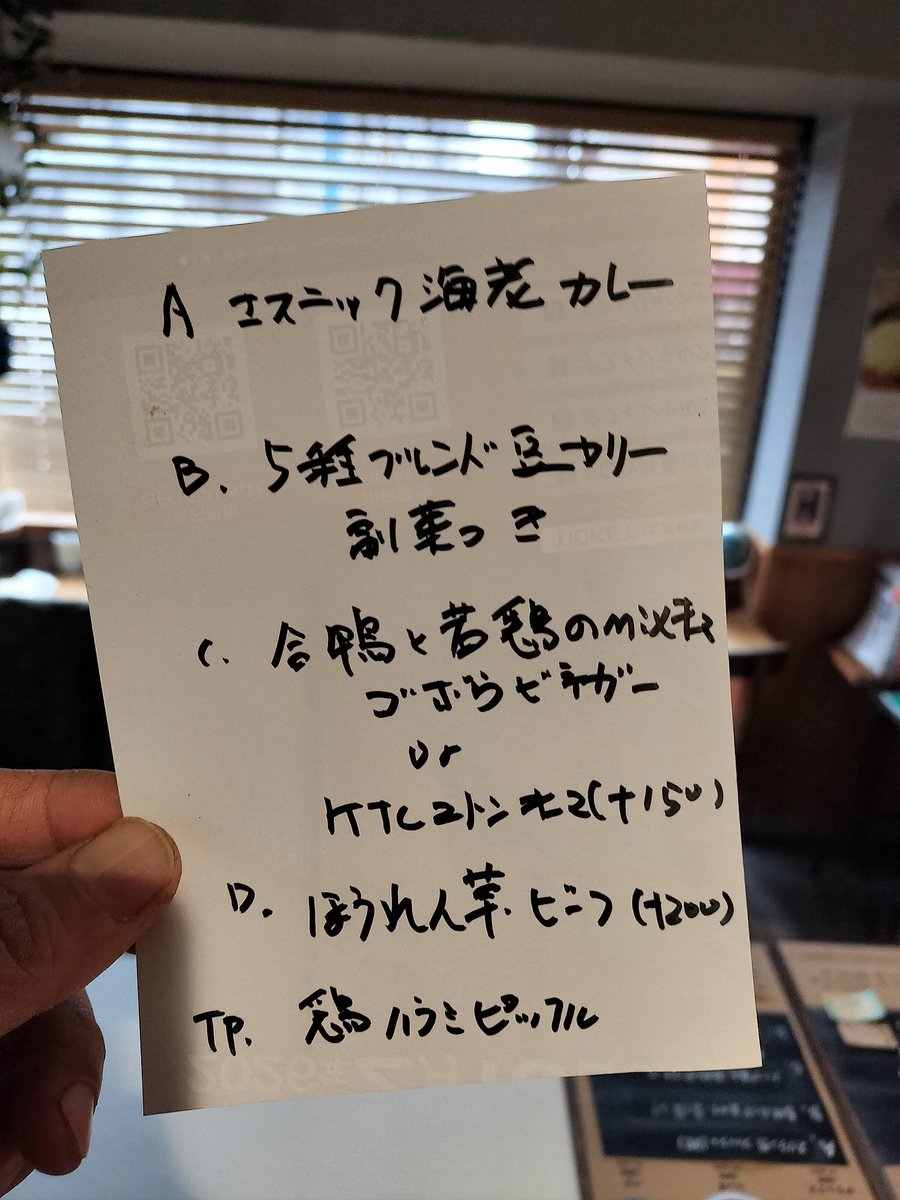 A エスニック海老カレー
B. 5種ブレンド豆カリー
副菜つき
C. 合鴨と若鶏のmixキーマ
ゴボウビネガー
or
(+150)
D. ほうれん草ビーフ(+200)
TP. 鶏ハラミピックル